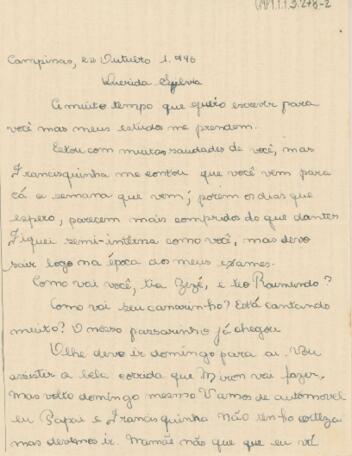 Campinas, Outubro 1.940
Querida Sylvia
A muito tempo que quero escrever para
você mas meus estudos me prendem.
Estou com muitas saudades de você, mas
Francisquinha me contou que você vem para
cá a semana que vem; porém os dias que
espero, parecem mais compridos do que dantes
Fiquei semi-interna como você, mas devo
sair logo na época dos meus exames.
Como vai você, tia Zézé, e tio Raimundo?
Como vai seu canarinho? Está cantando
muito? O nosso passarinho já chegou
Olhe devo ir domingo para ai. Vou
assistir a bela corrida que Miron vai fazer,
mas volto domingo mesmo Vamos de automovel
eu Papai e Francisquinha Não tenho certeza
mas devemos ir. Mamãe não que que eu vá